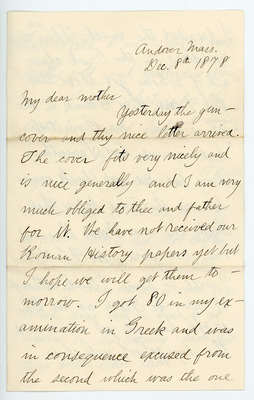 Andover Mass.
Dec. 8th 1878
My dear mother
Yesterday the gem-
cover and thy nice letter arrived.
The cover fits very nicely and
is nice generally and I am very
much obliged to thee and father
for it. We have not received our
Roman History papers yet but
I hope we will get them to-
morrow. I got 80 in my ex-
amination in Greek and was
in consequence excused from
the second which was the one